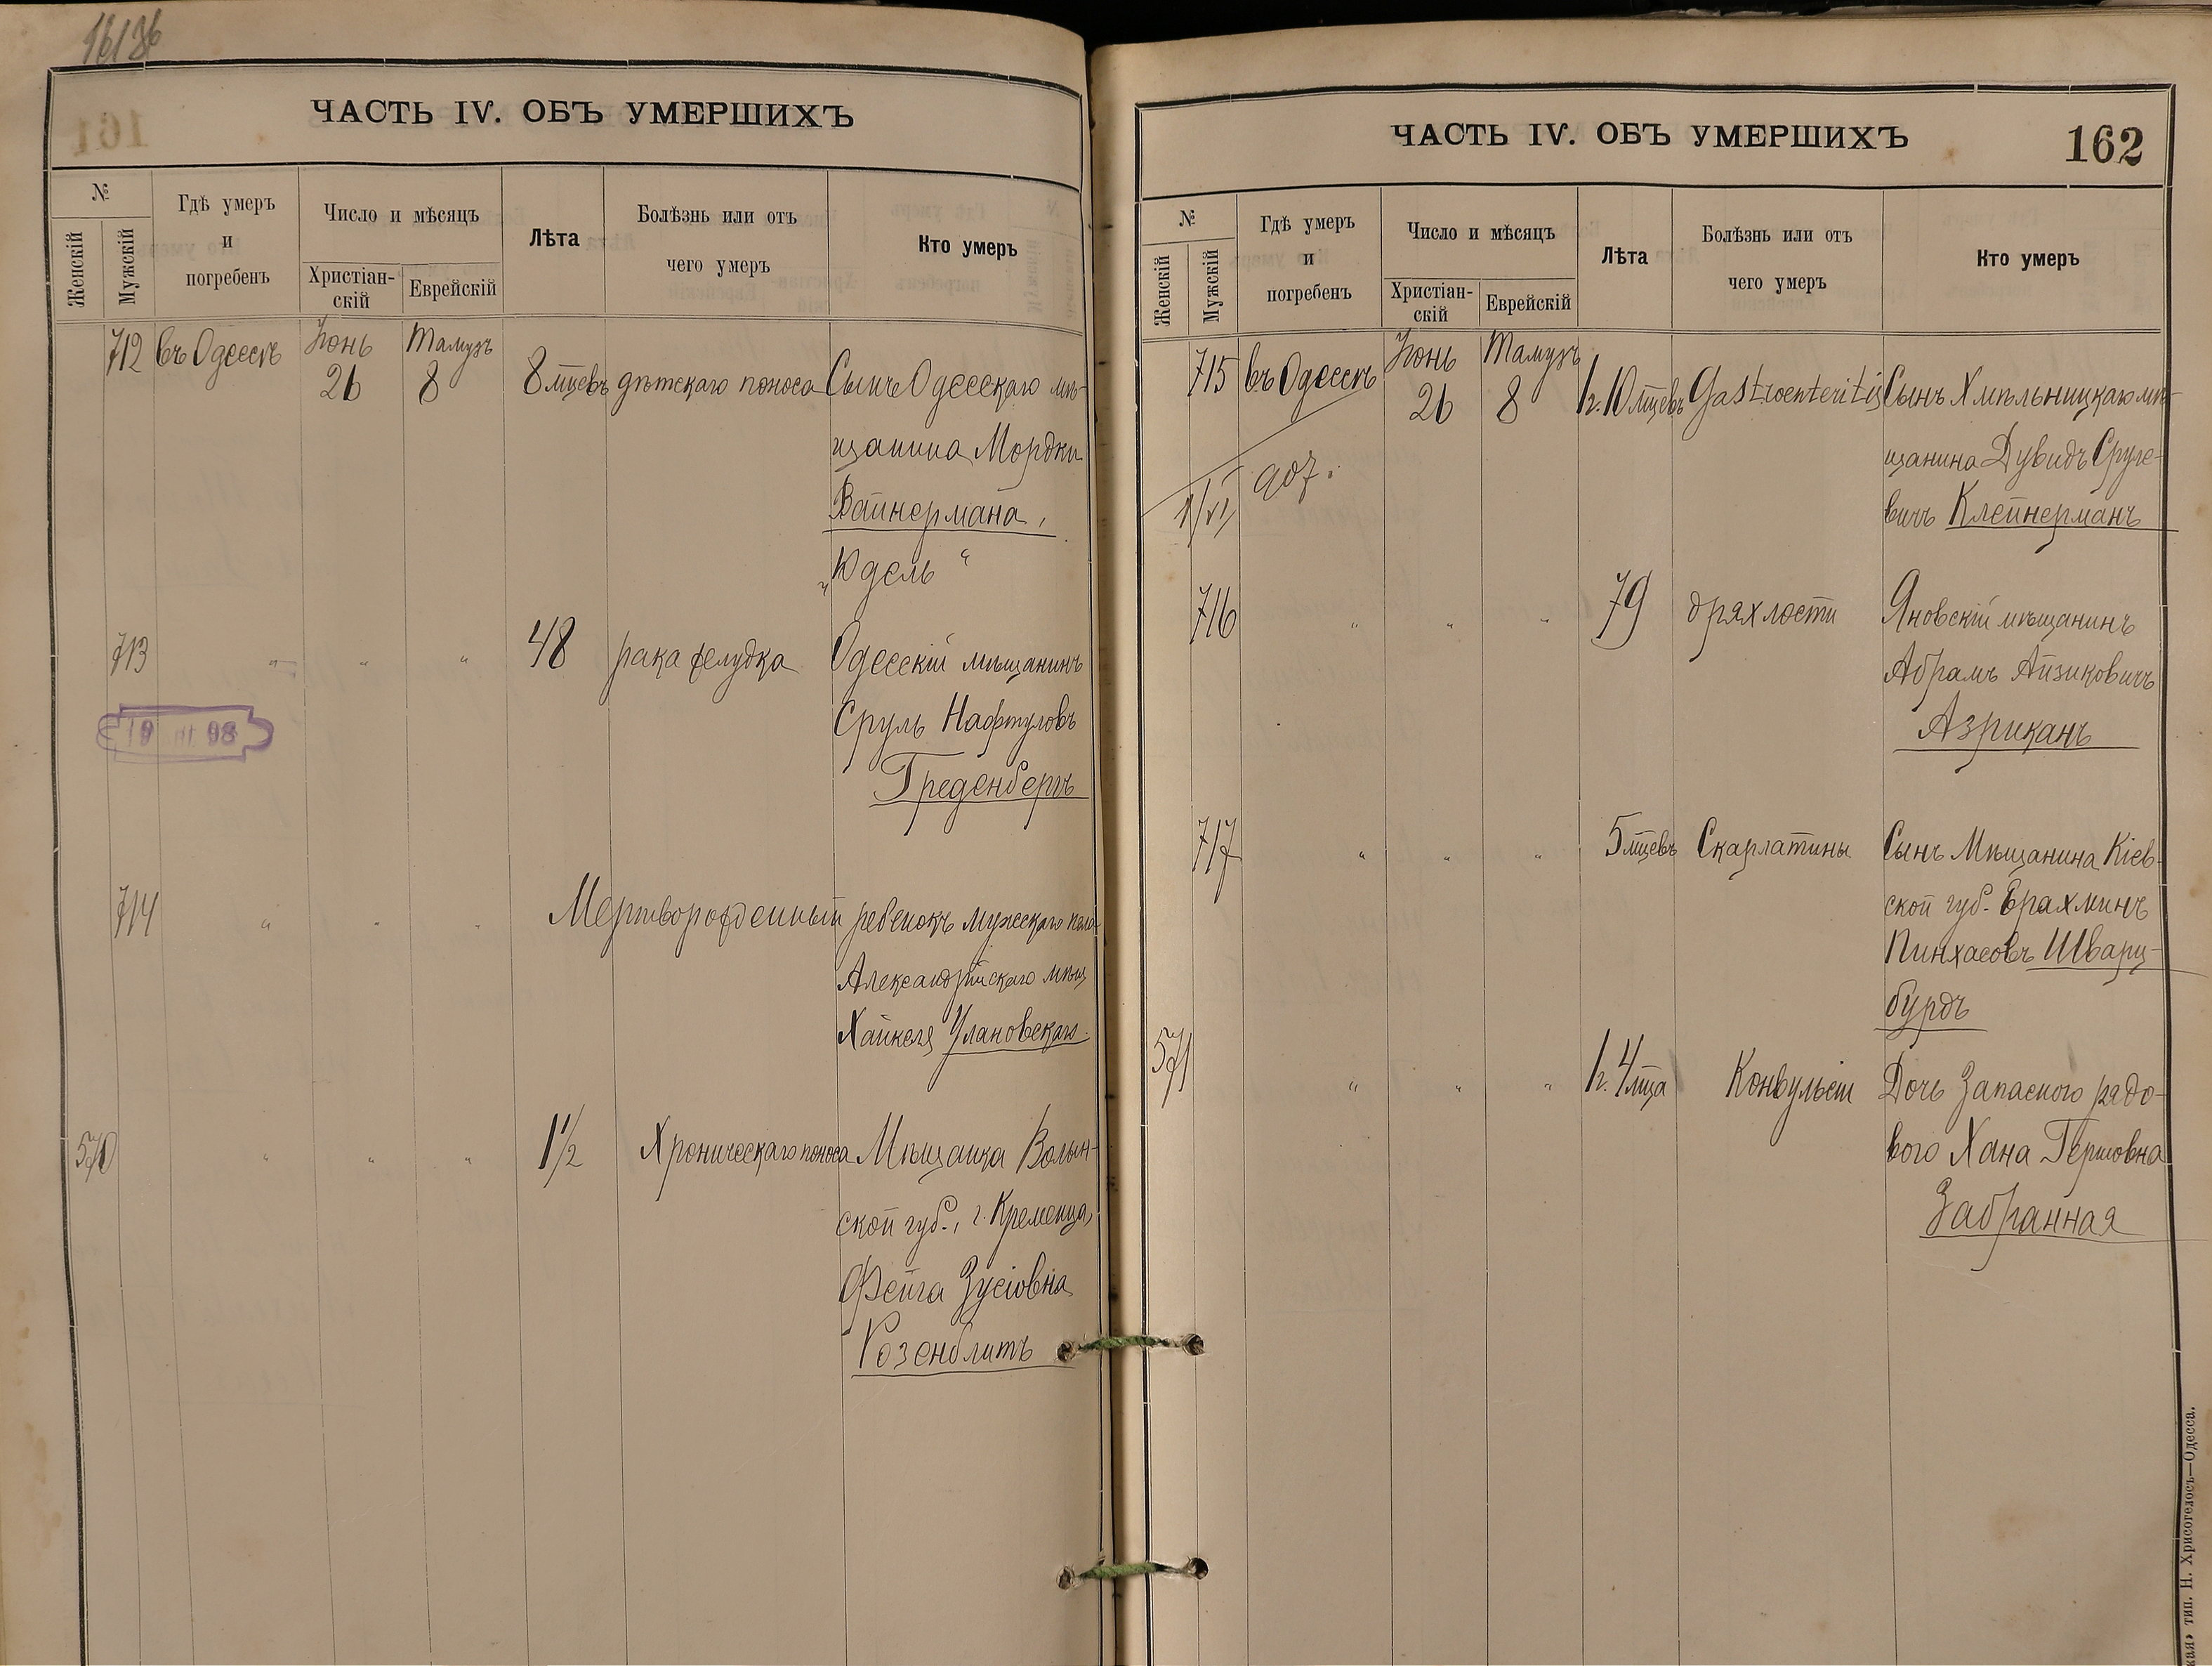 16/36
ЧАСТЬ IV. ОБЪ УМЕРШИХЪ
№
Женскій
Мужскій
Гдѣ умеръ
и
погребенъ
Число и мѣсяцъ
Христіан-
скій
Еврейскій
Лѣта
Болѣзнь или отъ
чего умеръ
Кто умеръ
712 въ Одессѣ Іюнь 26 Тамузъ 8 8 мцевъ дѣтскаго поноса Сынъ Одесскаго мѣ-
щанина Мордки
Вайнермана,
„Юдель“
713 „ „ „ 48 рака желудка Одесскій мѣщанинъ
Сруль Нафтуловъ
Греденбергъ
19 98
714 „ „ „ Мертворожденный ребенокъ мужескаго пола
Александрійскаго мѣщ
Хайкеля Улановскаго
570 „ „ „ 1½ Хроническаго поноса Мѣщанка Волын-
ской губ., г. Кременца,
Фейга Зусіовна
Розенблитъ
ЧАСТЬ IV. ОБЪ УМЕРШИХЪ
162
№
Женскій
Мужскій
Гдѣ умеръ
и
погребенъ
Число и мѣсяцъ
Христіан-
скій
Еврейскій
Лѣта
Болѣзнь или отъ
чего умеръ
Кто умеръ
715 въ Одессѣ Іюнь 26 Тамузъ 8 1г. 10 мцевъ Gastroenteritis Сынъ Хмѣльницкаго мѣ-
щанина Дувидъ Сруле-
вичъ Клейнерманъ
907.
716 „ „ „ 79 дряхлости Яновскій мѣщанинъ
Абрамъ Айзиковичъ
Азриканъ
717 „ „ „ 5 мцевъ Скарлатины Сынъ Мѣщанина Кіев-
ской губ. Ерахминъ
Пинхасовъ Шварц-
бурдъ
571 „ „ „ 1г. 4 мца Конвульсіи Дочь Запасного рядо-
вого Хана Гершовна
Забранная
кая» тип. Н. Хрисогелосъ—Одесса.